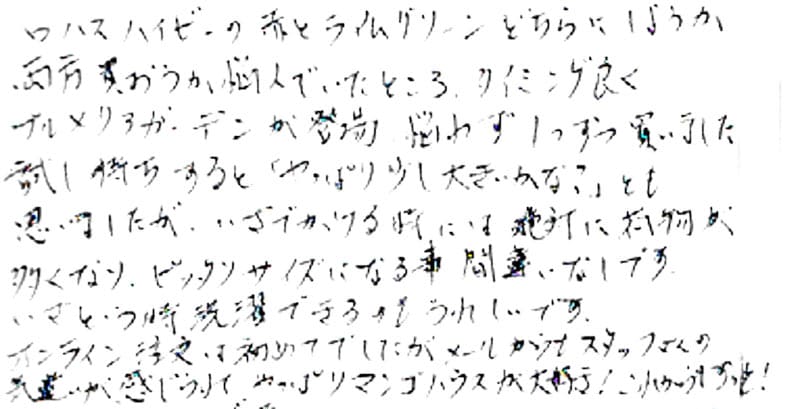 ロハスハイビーの赤とライムグリーンどちらにしようか
両方買おうか悩んでいたところ、タイミング良く
プルメリアガーデンが登場 悩わず1つずつ買いました
試し持ちすると「やっぱり少し大きいかなこ」とも
思いましたが、いざでかける時には絶対に荷物が
多くなり、ピッタリサイズになる事間違いなしです。
いざという時洗濯できるのもうれしいです。
オンライン注文は初めてでしたがメールからもスタッフさんの
気遣いが感じられて やっぱりマンゴハウスが大好き!これからもずっと!